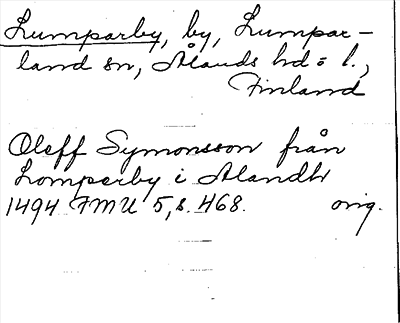 Lumparby, by, Lumpar-
land sn, Ålands hd o l.,
Finland
Oleff Symonsson från
Lomperby i Alandh
1494 FMU 5, s. 468. orig.